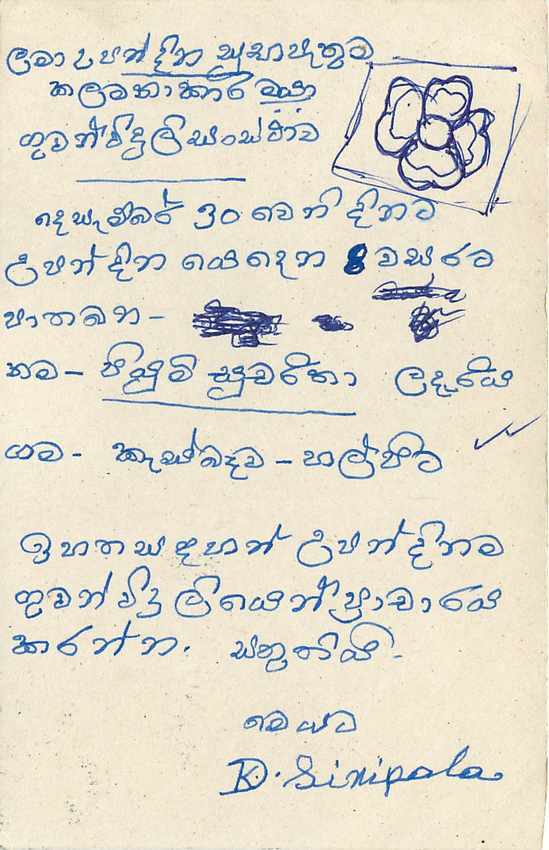 ළමා උපන්දින සුභපැතුම
කලමනාකාර මයා
ගුවන් විදුලි සංස්ථාව
දෙසැම්බර් 30 වෙනි දිනට
උපන්දින යෙදෙන 8 වසරට
පාතබන -
නම - පියුමි සුචරිතා ලදැරිය
ගම - කැස්බෑව - හල්පිට
ඉහත සඳහන් උපන්දිනම
ගුවන් විදුලියෙන් ප්‍රාචාරය
කරන්න. සතුතියි -
මෙයට
D. Siripala